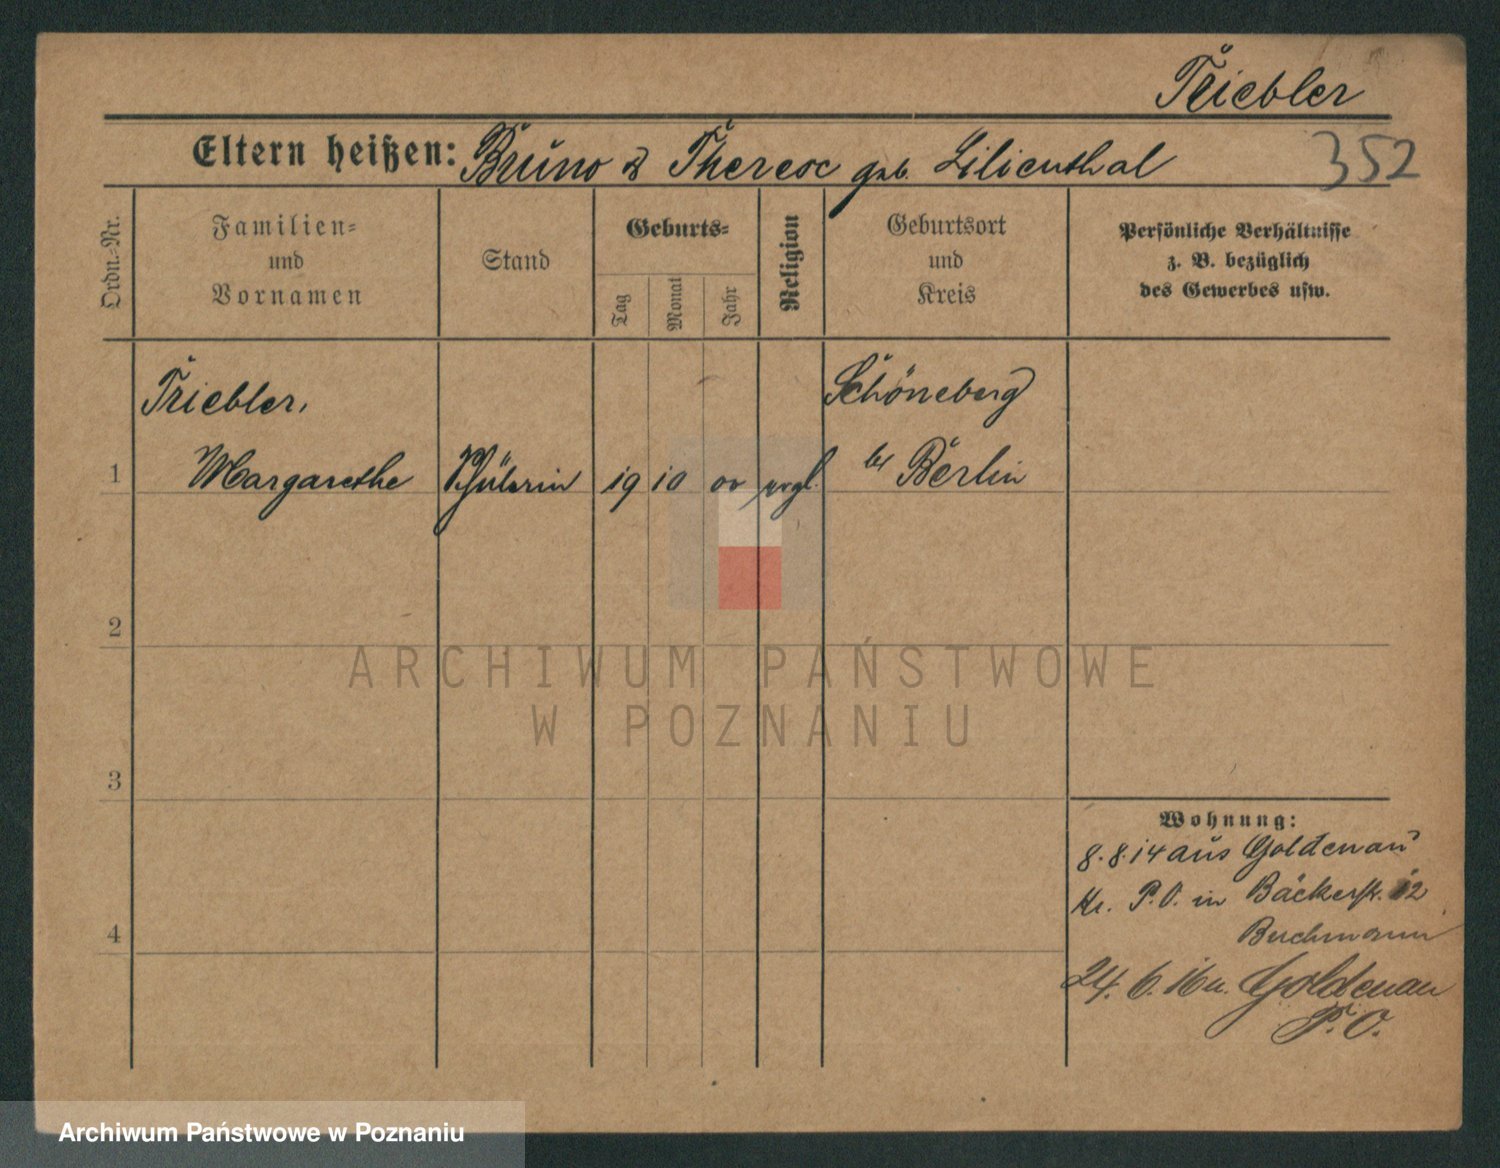 Triebler
Eltern heißen: Bruno & Therese geb. Lilienthal
352
Ordn.-Nr.
Familien-
und
Vornamen
Stand
Geburts-
Tag
Monat
Jahr
Religion
Geburtsort
und
Kreis
Persönliche Verhältnisse
z. B. bezüglich
des Gewerbes usw.
Triebler,
Schöneberg
1 Margarethe Schülerin 19 10 00 evgl. bei Berlin
2
3
4
Wohnung:
8.8.14 aus Goldenau
Kr. P.O. in Bäckerstr. 12
24.6.16 n. Goldenau
P.O.
ARCHIWUM PAŃSTWOWE
W POZNANIU
Archiwum Państwowe w Poznaniu